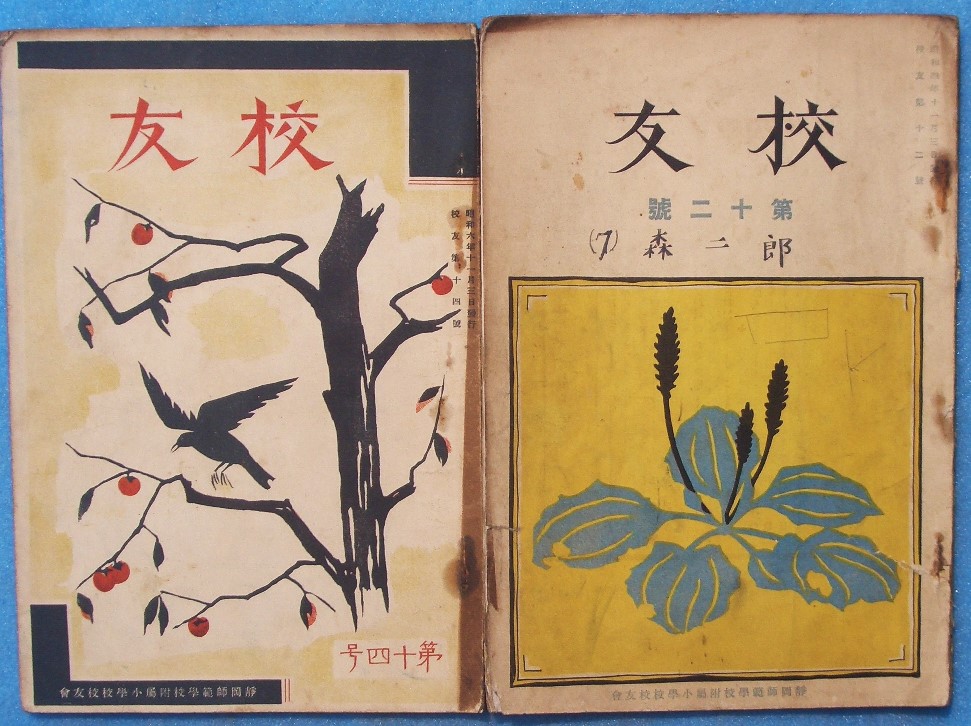 校友
昭和六年十一月三日發行
校友第十四號
第十四号
靜岡師範學校附屬小學校校友會
校友
第十二號
(7) 森二郎
昭和四年十一月三
校友第十二號
靜岡師範學校附屬小學校校友會